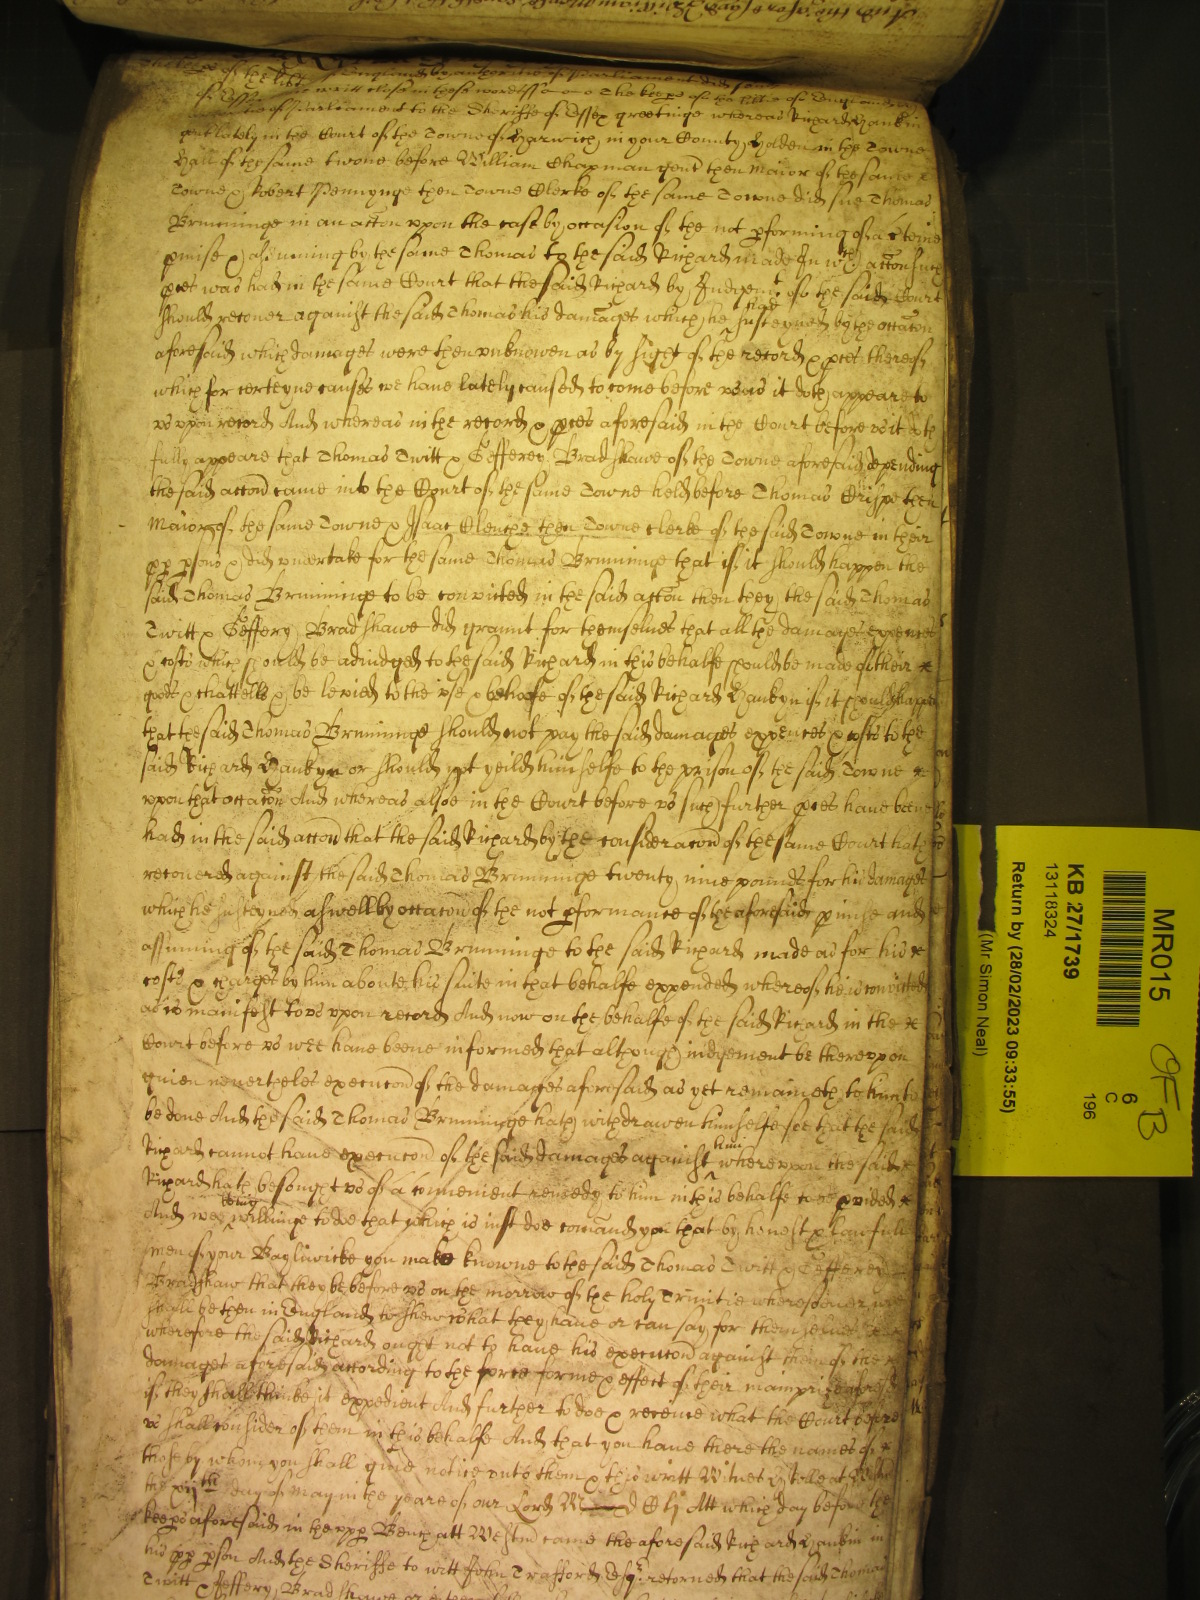 of the libtie of England by authoritie of Parliament did send
of Essex writt close in these wordes The keeps of the libtie of England by
of Parliament to the Sheriffe of Essex greetinge whereas Richard Hankin
gent lately in the Court of the Towne of Harwich in your County Holden in the Towne
Hall of the same twone before William Chapman gent then Maior of the same
Towne & Robert Pennynge then Towne Clerke of the same Towne did sue Thomas
Brunninge in an accon vpon the case by occasion of the not pforming of a cteine
pmise & assuming by the same Thomas to the said Richard made In wch accon such
pces was had in the same Court that the said Richard by Judgemt of the said Court
should recouer against the said Thomas his damages which he had susteyned by the occacon
aforesaid which damages were then vnknowen as by sight of the record & pces thereof
which for certeyne causes we haue lately caused to come before vs as it doth appeare to
vs vpon record And whereas in the record & pces aforesaid in the Court before vs it doth
fully appeare that Thomas Twitt & Jefferey Bradshawe of the Towne aforesaid depending
the said accon came into the Court of the same Towne held before Thomas Crispe then
Maior of the same Towne & Isaac Clenche then Towne Clerke of the said Towne in their
pp psons & did vndertake for the same Thomas Brunninge that if it should happen the
said Thomas Brunninge to be convicted in the said accon then they the said Thomas
Twitt & Jeffery Bradshawe did graunt for themselues that all the damages expences
& costs which should be adiudged to the said Richard in this behalfe should be made of their
goods & chattells & be levied to the vse & behoofe of the said Richard Hankyn if it should happen
that the said Thomas Brunninge should not pay the said damages expences & costs to the
said Richard Hankyn or should not yeild himselfe to the prison of the said Towne
vpon that occacon And whereas alsoe in the Court before vs such further pces haue beene
had in the said accon that the said Richard by the consideracon of the same Court hath
recouered against the said Thomas Brunninge twenty nine pounds for his damages
which he susteyned aswell by occacon of the not pformance of the aforesaid pmise and
assuming of the said Thomas Brunninge to the said Richard made as for his
costs & charges by him aboute his suite in that behalfe expended whereof he is convicted
as is manifest to vs vpon record And now on the behalfe of the said Richard in the
Court before vs wee haue beene informed that although iudgement be therevpon
giuen neuertheles execucon of the damages aforesaid as yet remaineth to him to
be done And the said Thomas Brunninge hath withdrawen himselfe soe that the said
Richard cannot haue execucon of the said damages against him wherevpon the said
Richard hath besought vs of a convenient remedy to him in this behalfe to be pvided
And wee being willinge to doe that which is iust doe comand you that by honest & lawfull
men of your Bayliwicke you make knowne to the said Thomas Twitt & Jefferey
Bradshaw that they be before vs on the morrow of the holy Trinitie wheresoeuer we
shall be then in England to shew what they haue or can say for themselues
wherefore the said Richard ought not to haue his execucon against them of the
damages aforesaid according to the force forme & effect of their mainprize aforesd
if they shall thinke it expedient And further to doe & receiue what the Court before
vs shall consider of them in this behalfe And that you haue there the names of
those by whom you shall giue notice vnto them & this writt Witnes H Rolle at Westm
the xijth day of May in the yeare of our Lord M D C lj Att which day before the
keeps aforesaid in the vpp Bench att Westm came the aforesaid Richard Hankin in
his pp pson And the Sheriffe to witt John Trafford Esqr retorned that the said Thomas
Twitt & Jeffery Bradshawe
MR015
KB 27/1739
13118324
Return by (28/02/2023 09:33:55)
(Mr Simon Neal)
6
C
196